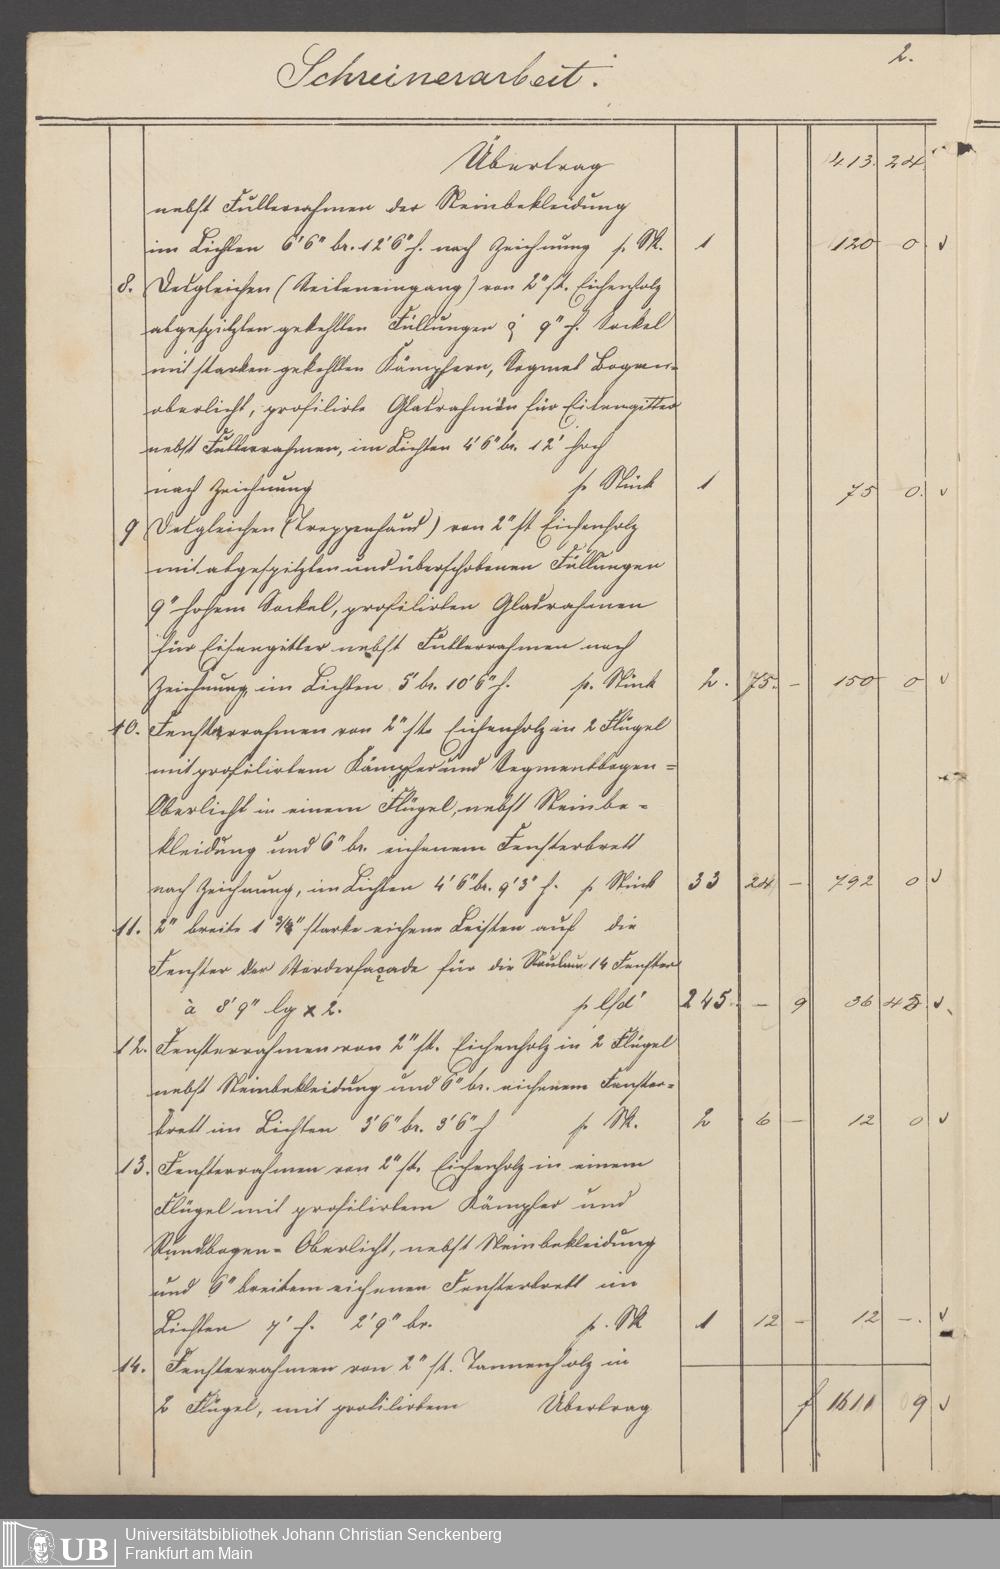 2.
Schreinerarbeit.
Übertrag 413. 24.
nebst Futterrahmen der Steinbekleidung
im Lichten 6'6" br. 12'6" h. nach Zeichnung p. St. 1 120 0.
8. Desgleichen (Seiteneingang) von 2" st. Eichenholz
abgespitzten gekehlten Füllungen 9" h. Sockel
mit starken gekehlten Kämpfern, Segment Bogen-
oberlicht, profilirte Glasrahmen für Eisengitter
nebst Futterrahmen, im Lichten 4'6" br. 12' hoch
nach Zeichnung p. Stück 1 75 0.
9 Desgleichen (Treppenhaus) von 2" st Eichenholz
mit abgespitzten und überschobenen Füllungen
9" hohem Sockel, profilirten Glasrahmen
für Eisengitter nebst Futterrahmen nach
Zeichnung im Lichten 5' br. 10'6" h. p. Stück 2. 75. – 150 0
10. Fensterrahmen von 2" st. Eichenholz in 2 Flügel
mit profilirtem Kämpfer und Segmentbogen=
Oberlicht in einem Flügel, nebst Steinbe-
kleidung und 6" br. eichenem Fensterbrett
nach Zeichnung, im Lichten 4'6" br. 9'3" h. p Stück 33 24 – 792 0
11. 2" breite 1 3/4" starke eichene Leisten auf die
Fenster der Vorderfaçade für die 14 Fenster
à 8'9" lg x 2. p lfd' 245. – 9 36 45
12. Fensterrahmen von 2" st. Eichenholz in 2 Flügel
nebst Steinbekleidung und 6" br. eichenem Fenster=
brett im Lichten 3'6" br. 3'6" h p. St. 2 6 – 12 0
13. Fensterrahmen von 2" st. Eichenholz in einem
Flügel mit profilirtem Kämpfer und
Rundbogen- Oberlicht, nebst Steinbekleidung
und 6" breitem eichenen Fensterbrett im
Lichten 7' h. 2'9" br. p. St 1 12 – 12 –.
14. Fensterrahmen von 2" st. Tannenholz in
2 Flügel, mit profilirtem Übertrag f 1611 9
UB
Universitätsbibliothek Johann Christian Senckenberg
Frankfurt am Main